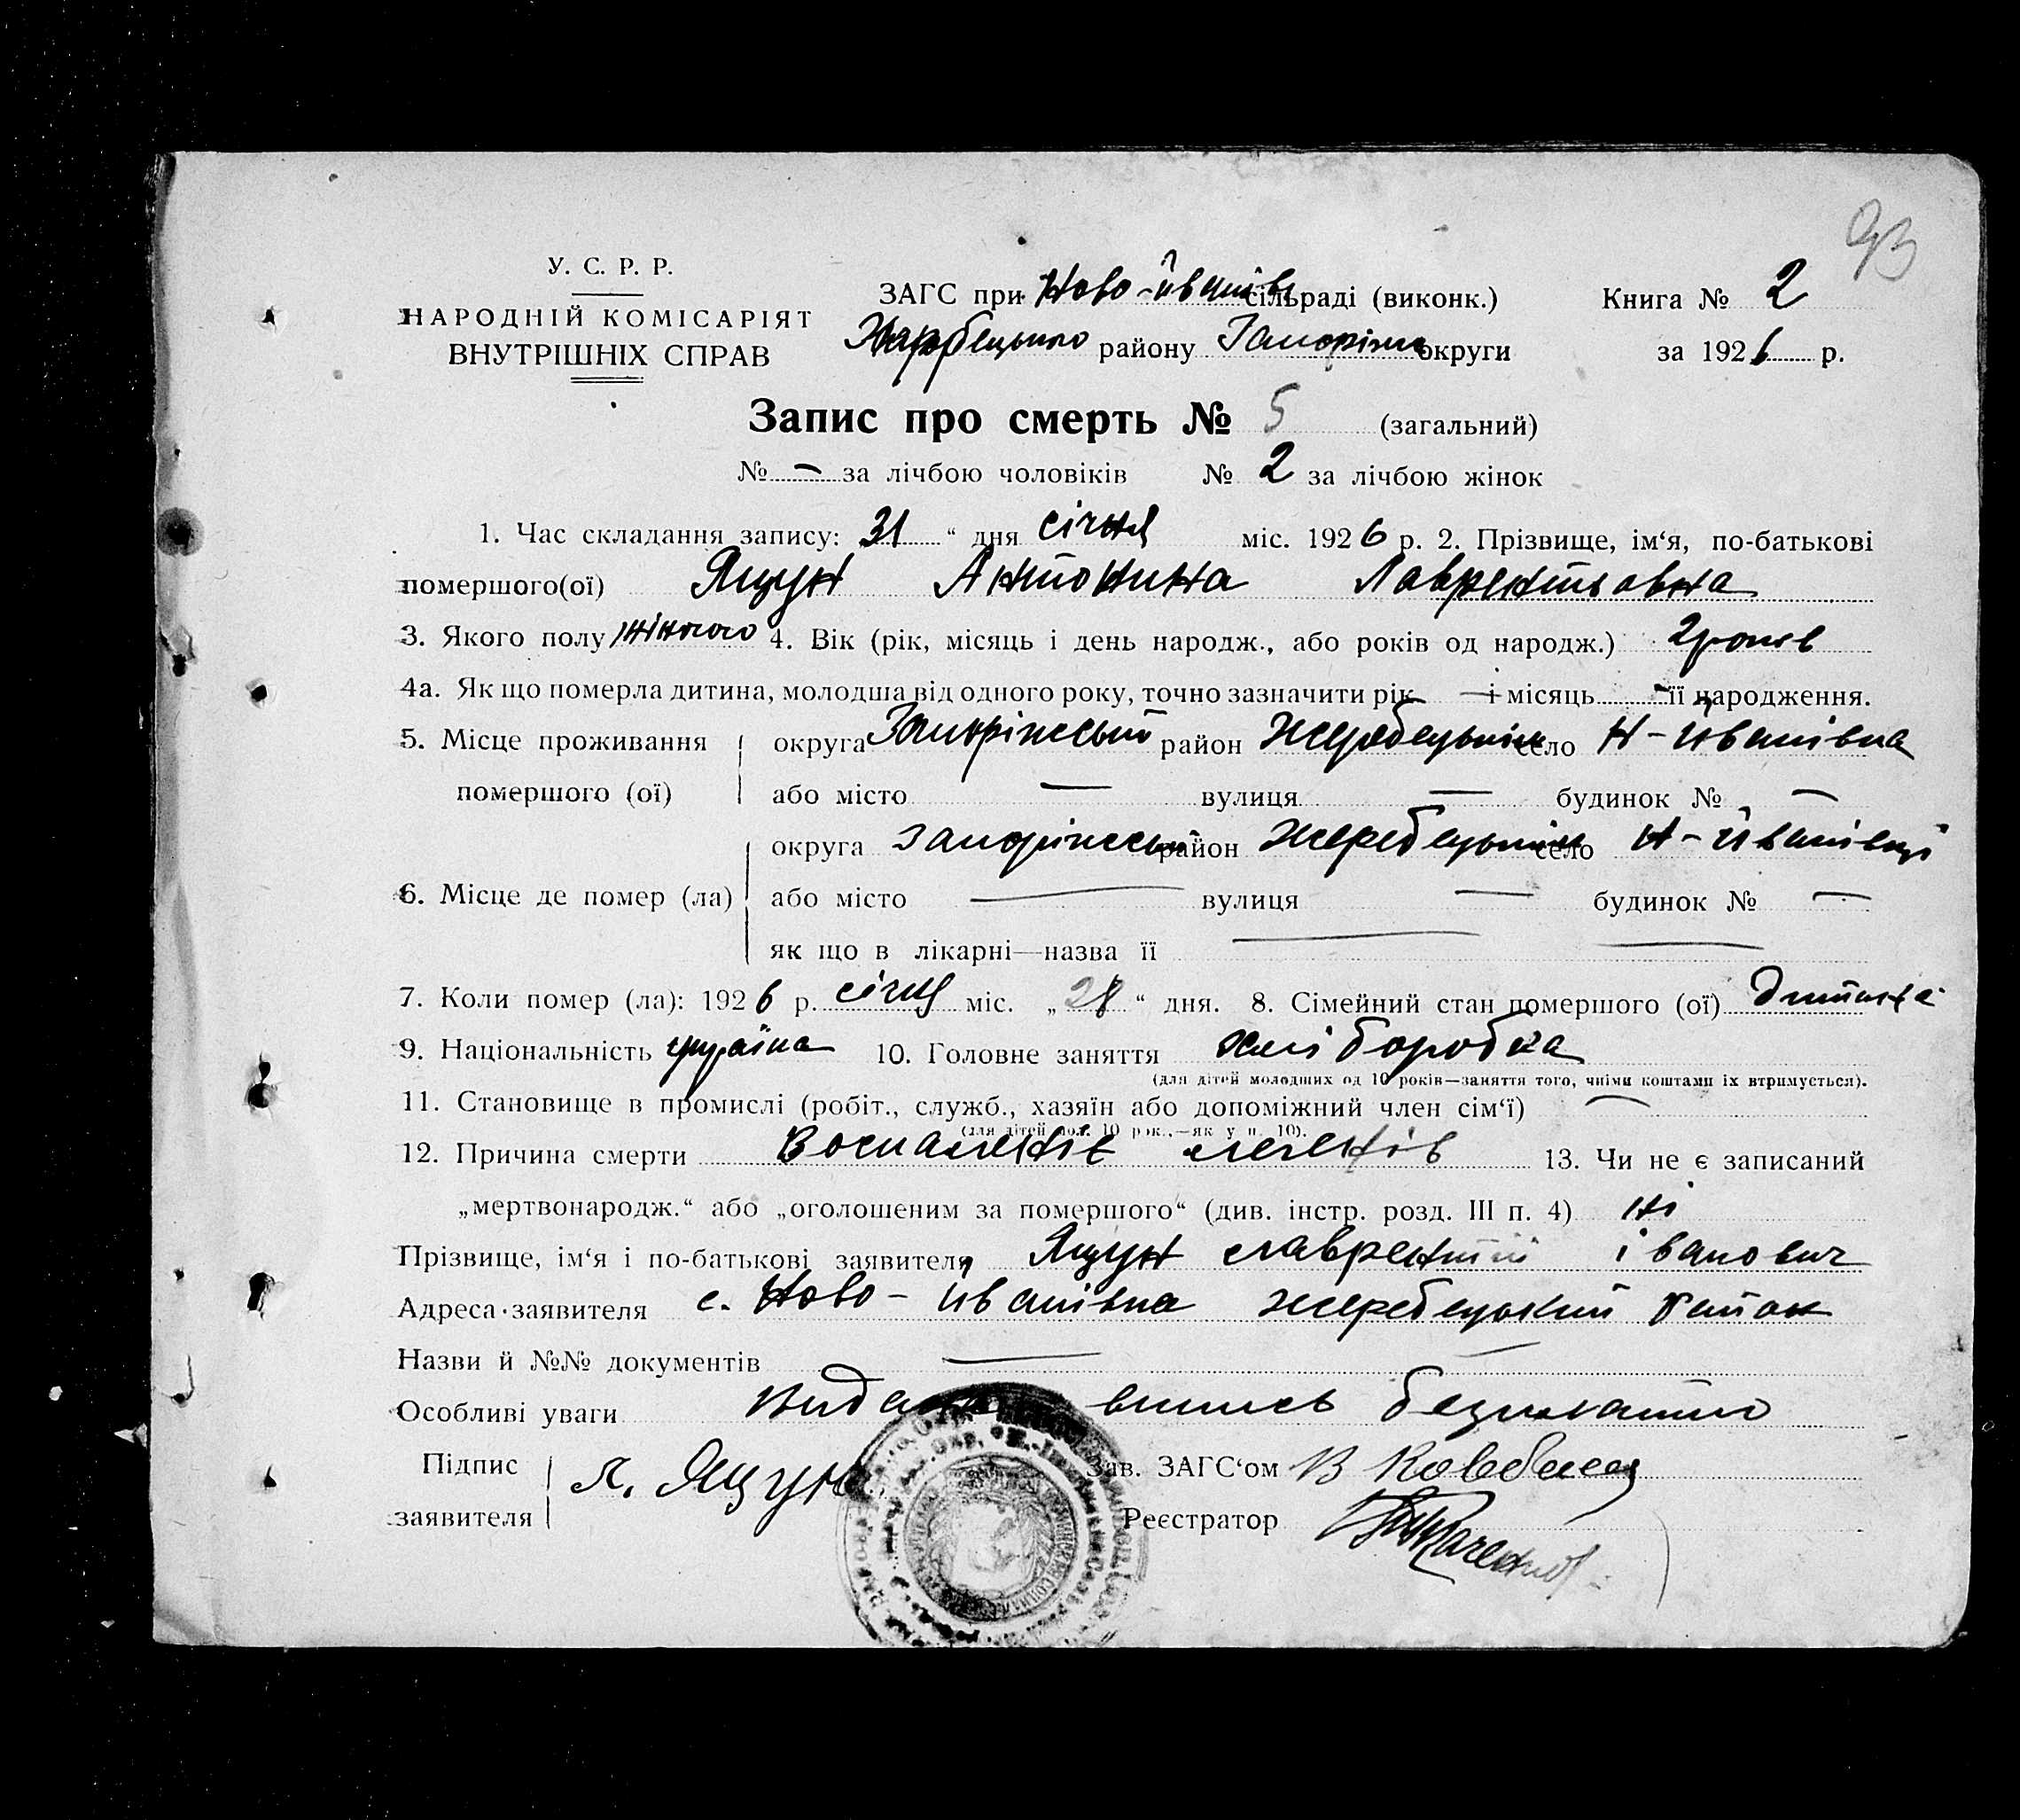 93
У. С. Р. Р.
НАРОДНІЙ КОМІСАРІЯТ
ВНУТРІШНІХ СПРАВ
ЗАГС при Ново-Йванів сільраді (виконк.)
району округи
Книга № 2
за 1926 р.
Запис про смерть № 5 (загальний)
№ — за лічбою чоловіків № 2 за лічбою жінок
1. Час складання запису: 31 “ дня січня міс. 1926 р. 2. Прізвище, ім‘я, по-батькові
помершого(ої) Яцун Антонина Лаврентьовна
3. Якого полу жіночого 4. Вік (рік, місяць і день народж., або років од народж.) 2 років
4а. Як що померла дитина, молодша від одного року, точно зазначити рік — і місяць — її народження.
5. Місце проживання помершого (ої)
округа Запоріжський район Жеребецький село Н-Йванівка
або місто — вулиця — будинок № —
6. Місце де помер (ла)
округа Запоріжський район Жеребецький село Н-Йванівці
або місто — вулиця — будинок № —
як що в лікарні—назва її —
7. Коли помер (ла): 1926 р. січня міс. „28“ дня. 8. Сімейний стан помершого (ої) дитина
9. Національність україна 10. Головне заняття хліборобка
(для дітей молодших од 10 років—заняття того, чиїми коштами їх втримується).
11. Становище в промислі (робіт., служб., хазяїн або допоміжний член сім‘ї) —
(для дітей мол. 10 рок.,—як у п. 10).
12. Причина смерти Воспаленів легенів 13. Чи не є записаний
„мертвонародж.“ або „оголошеним за помершого“ (див. інстр. розд. III п. 4) ні
Прізвище, ім‘я і по-батькові заявителя Яцун Лаврентій Іванович
Адреса заявителя с. Ново-Йванівка Жеребецький район
Назви й №№ документів —
Особливі уваги видана випись безплатно
Підпис заявителя Л. Яцун
Зав. ЗАГС‘ом В Ковбаса
Реєстратор